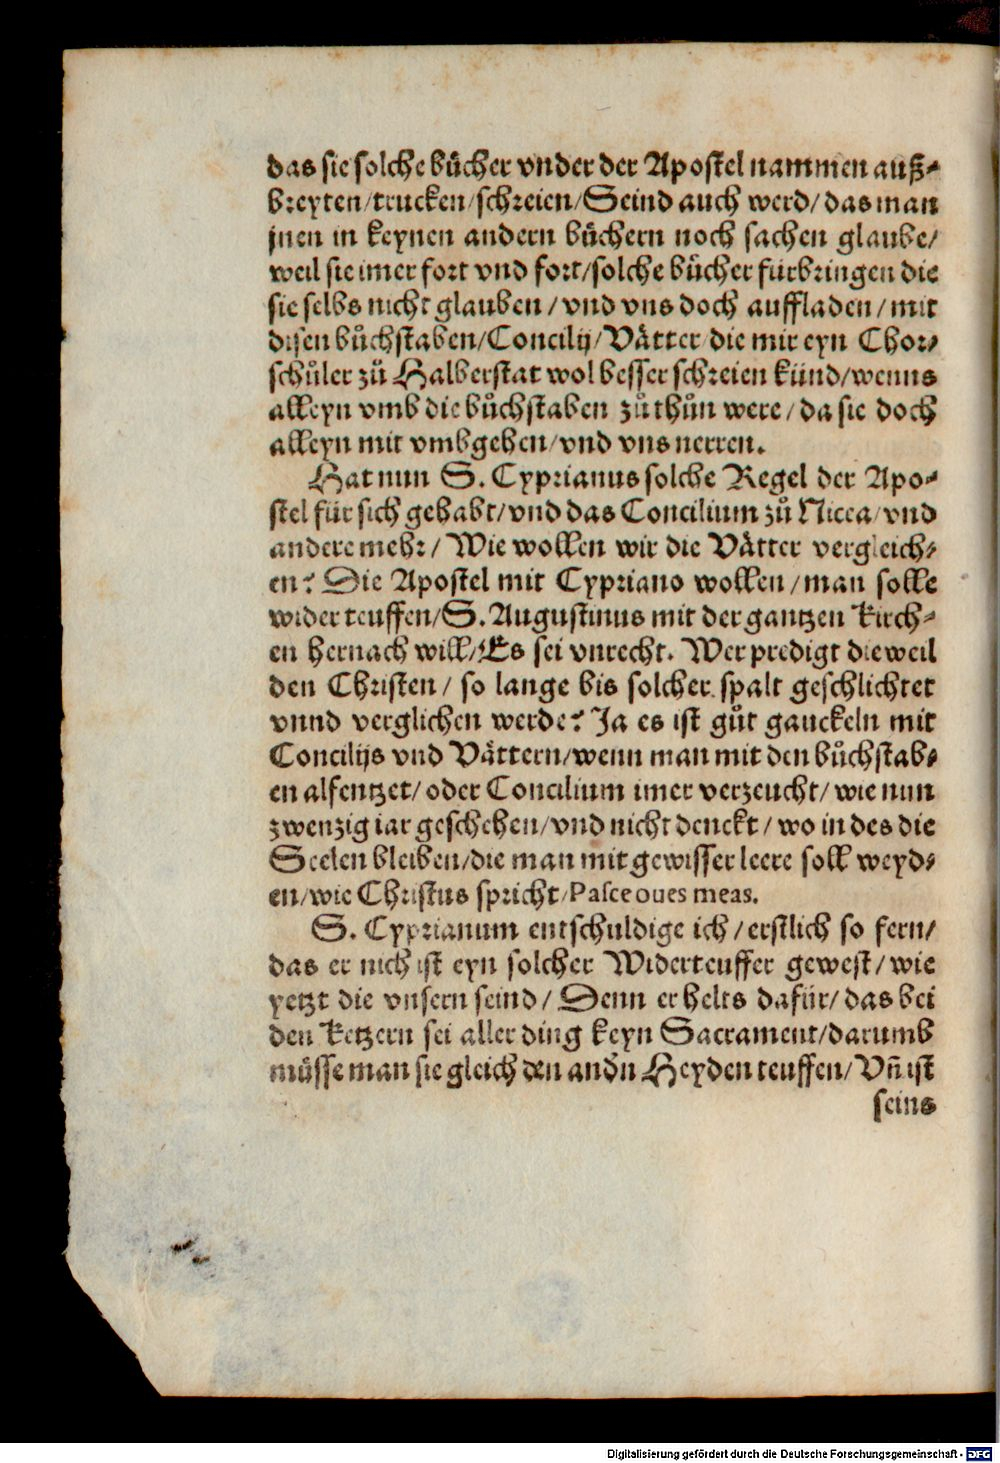 das sie solche buͤcher vnder der Apostel nammen auß-
breyten/trucken/schreien/Seind auch werd/das man
jnen in keynen andern buͤchern noch sachen glaube/
weil sie imer fort vnd fort/solche buͤcher fürbringen die
sie selbs nicht glauben/vnd vns doch auffladen/mit
disen buͦchstaben/Concilij/Vaͤtter/die mir eyn Chor-
schuͤler zuͦ Halberstat wol besser schreien künd/wenns
alleyn vmb die buͦchstaben zuͦ thuͦn were/da sie doch
alleyn mit vmbgehen/vnd vns nerren.
Hat nun S. Cyprianus solche Regel der Apo-
stel für sich gehabt/vnd das Concilium zuͦ Nicea/vnd
andere mehr/Wie wollen wir die Vaͤtter vergleich-
en? Die Apostel mit Cypriano wollen/man solle
widerteuffen/S. Augustinus mit der gantzen Kirch-
en hernach will/Es sei vnrecht. Wer predigt dieweil
den Christen/so lange bis solcher spalt geschlichtet
vnnd verglichen werde? Ja es ist guͦt gauckeln mit
Concilijs vnd Vaͤttern/wenn man mit den buͦchstab-
en alfentzet/oder Concilium imer verzeucht/wie nun
zwenzig iar geschehen/vnd nicht denckt/wo in des die
Seelen bleiben/die man mit gewisser leere soll weyd-
en/wie Christus spricht/Pasce oues meas.
S. Cyprianum entschuldige ich/erstlich so fern/
das er nich ist eyn solcher Widerteuffer gewest/wie
yetzt die vnsern seind/Denn er helts dafür/das bei
den Ketzern sei aller ding keyn Sacrament/darumb
müsse man sie gleich den andn̄ Heyden teuffen/Vn̄ ist
seins
Digitalisierung gefördert durch die Deutsche Forschungsgemeinschaft - DFG